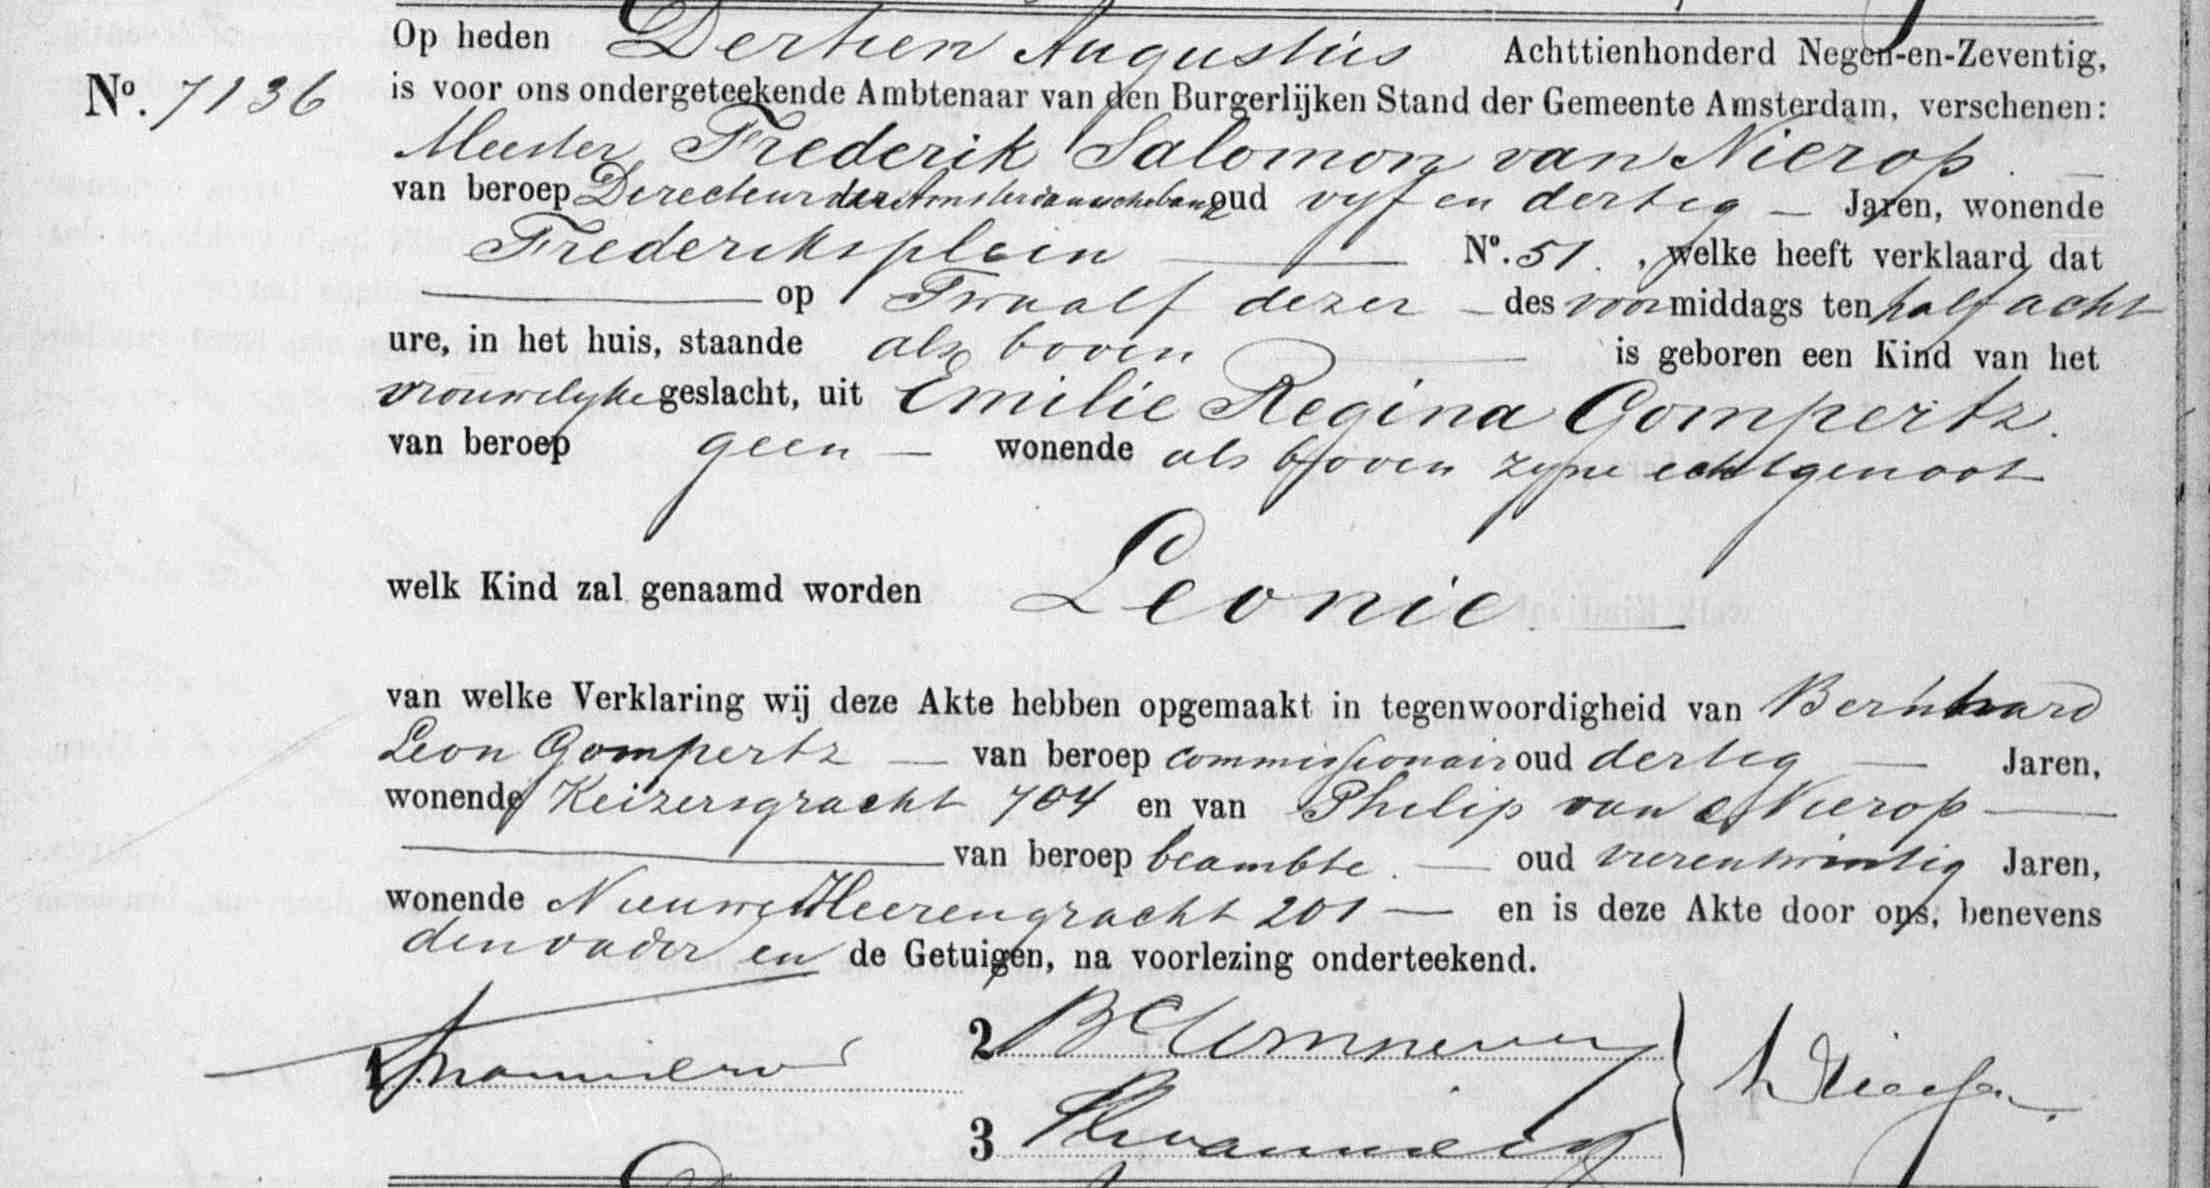 Op heden Dertien Augustus Achttienhonderd Negen-en-Zeventig,
No. 7136 is voor ons ondergeteekende Ambtenaar van den Burgerlijken Stand der Gemeente Amsterdam, verschenen:
Meester Frederik Salomon van Nierop.
van beroep Directeur der Amsterdamsche bank oud vyf en dertig — Jaren, wonende
Frederiksplein — No. 51. , welke heeft verklaard dat
— op Twaalf dezer — des voormiddags ten half acht
ure, in het huis, staande als boven — is geboren een Kind van het
vrouwelyke geslacht, uit Emilie Regina Gompertz.
van beroep geen — wonende als boven zyne echtgenoot
welk Kind zal genaamd worden Leonie —
van welke Verklaring wij deze Akte hebben opgemaakt in tegenwoordigheid van Bernhard
Leon Gompertz — van beroep commissionair oud dertig — Jaren,
wonende Keizersgracht 704 en van Philip van Nierop —
— van beroep beambte. — oud vierentwintig Jaren,
wonende Nieuwe Heerengracht 201 — en is deze Akte door ons, benevens
den vader en de Getuigen, na voorlezing onderteekend.
1
2
3